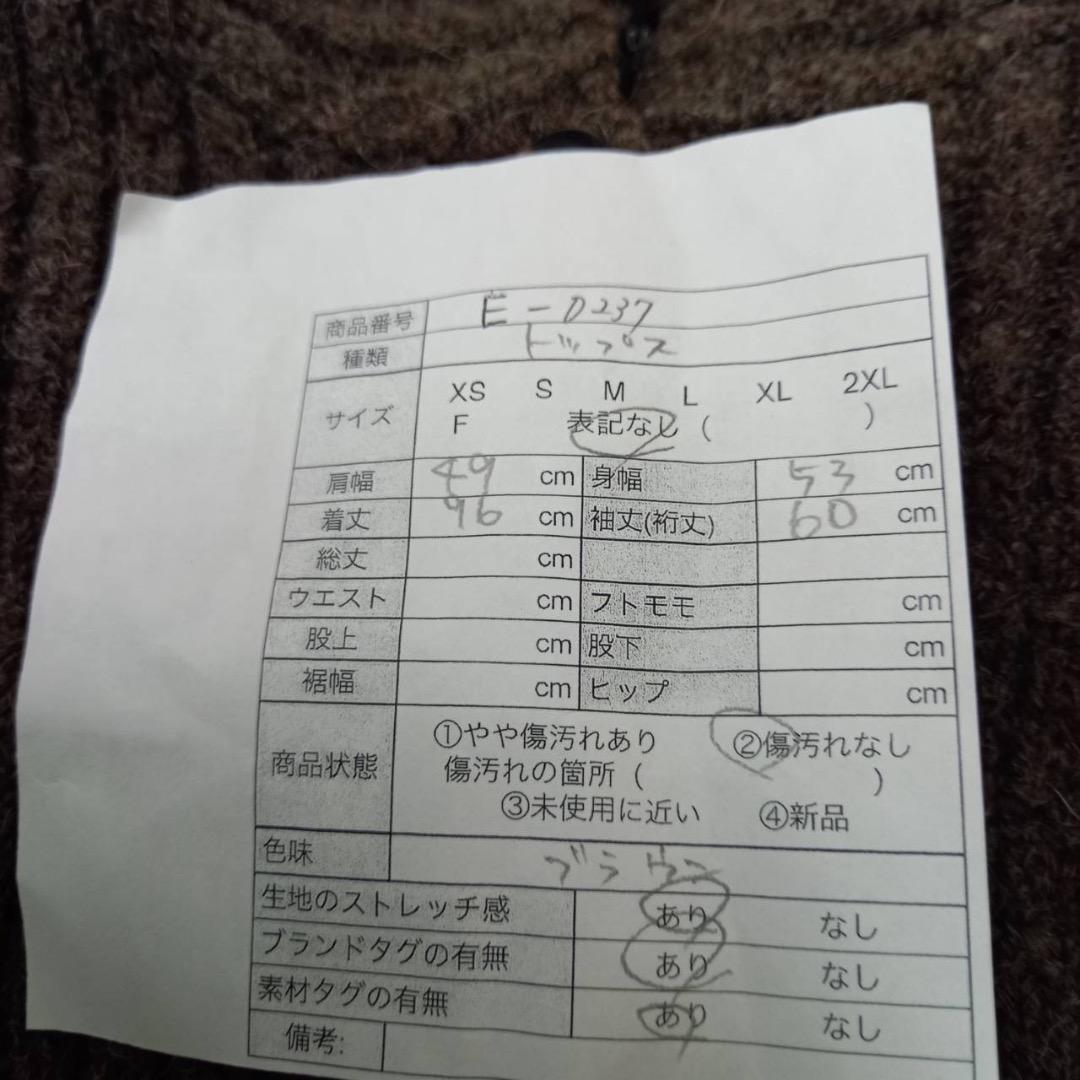 商品番号 E-0237
種類 トップス
サイズ XS S M L XL 2XL
F 表記なし ( )
肩幅 49 cm 身幅 53 cm
着丈 96 cm 袖丈(裄丈) 60 cm
総丈 cm
ウエスト cm フトモモ cm
股上 cm 股下 cm
裾幅 cm ヒップ cm
商品状態 ①やや傷汚れあり ②傷汚れなし
傷汚れの箇所 ( )
③未使用に近い ④新品
色味 ブラウン
生地のストレッチ感 あり なし
ブランドタグの有無 あり なし
素材タグの有無 あり なし
備考: